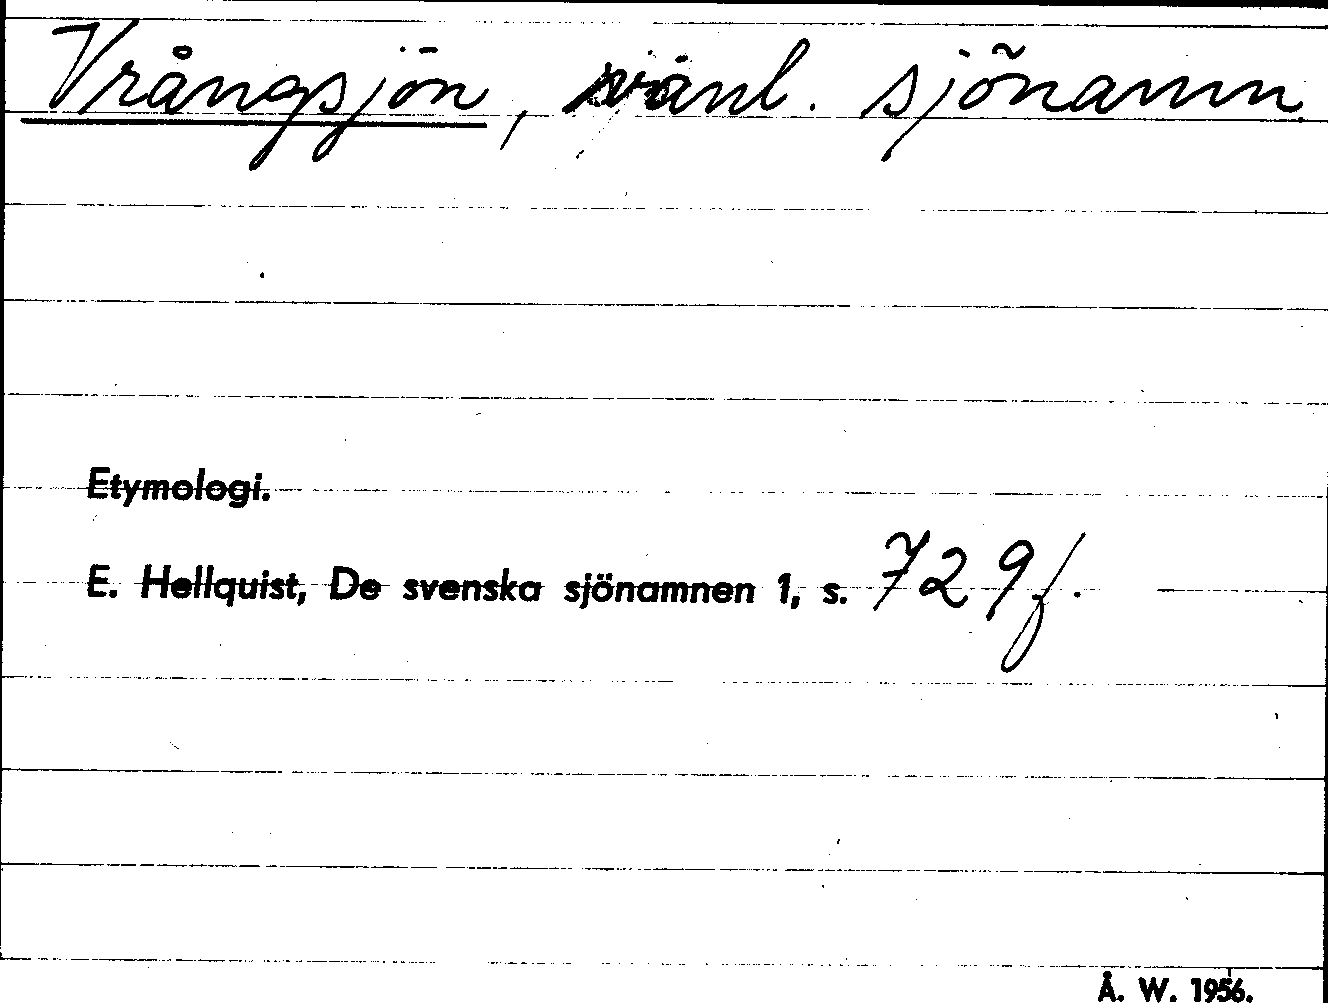 Vrångsjön, vanl. sjönamn.
Etymologi.
E. Hellquist, De svenska sjönamnen 1, s. 729 f.
Å. W. 1956.